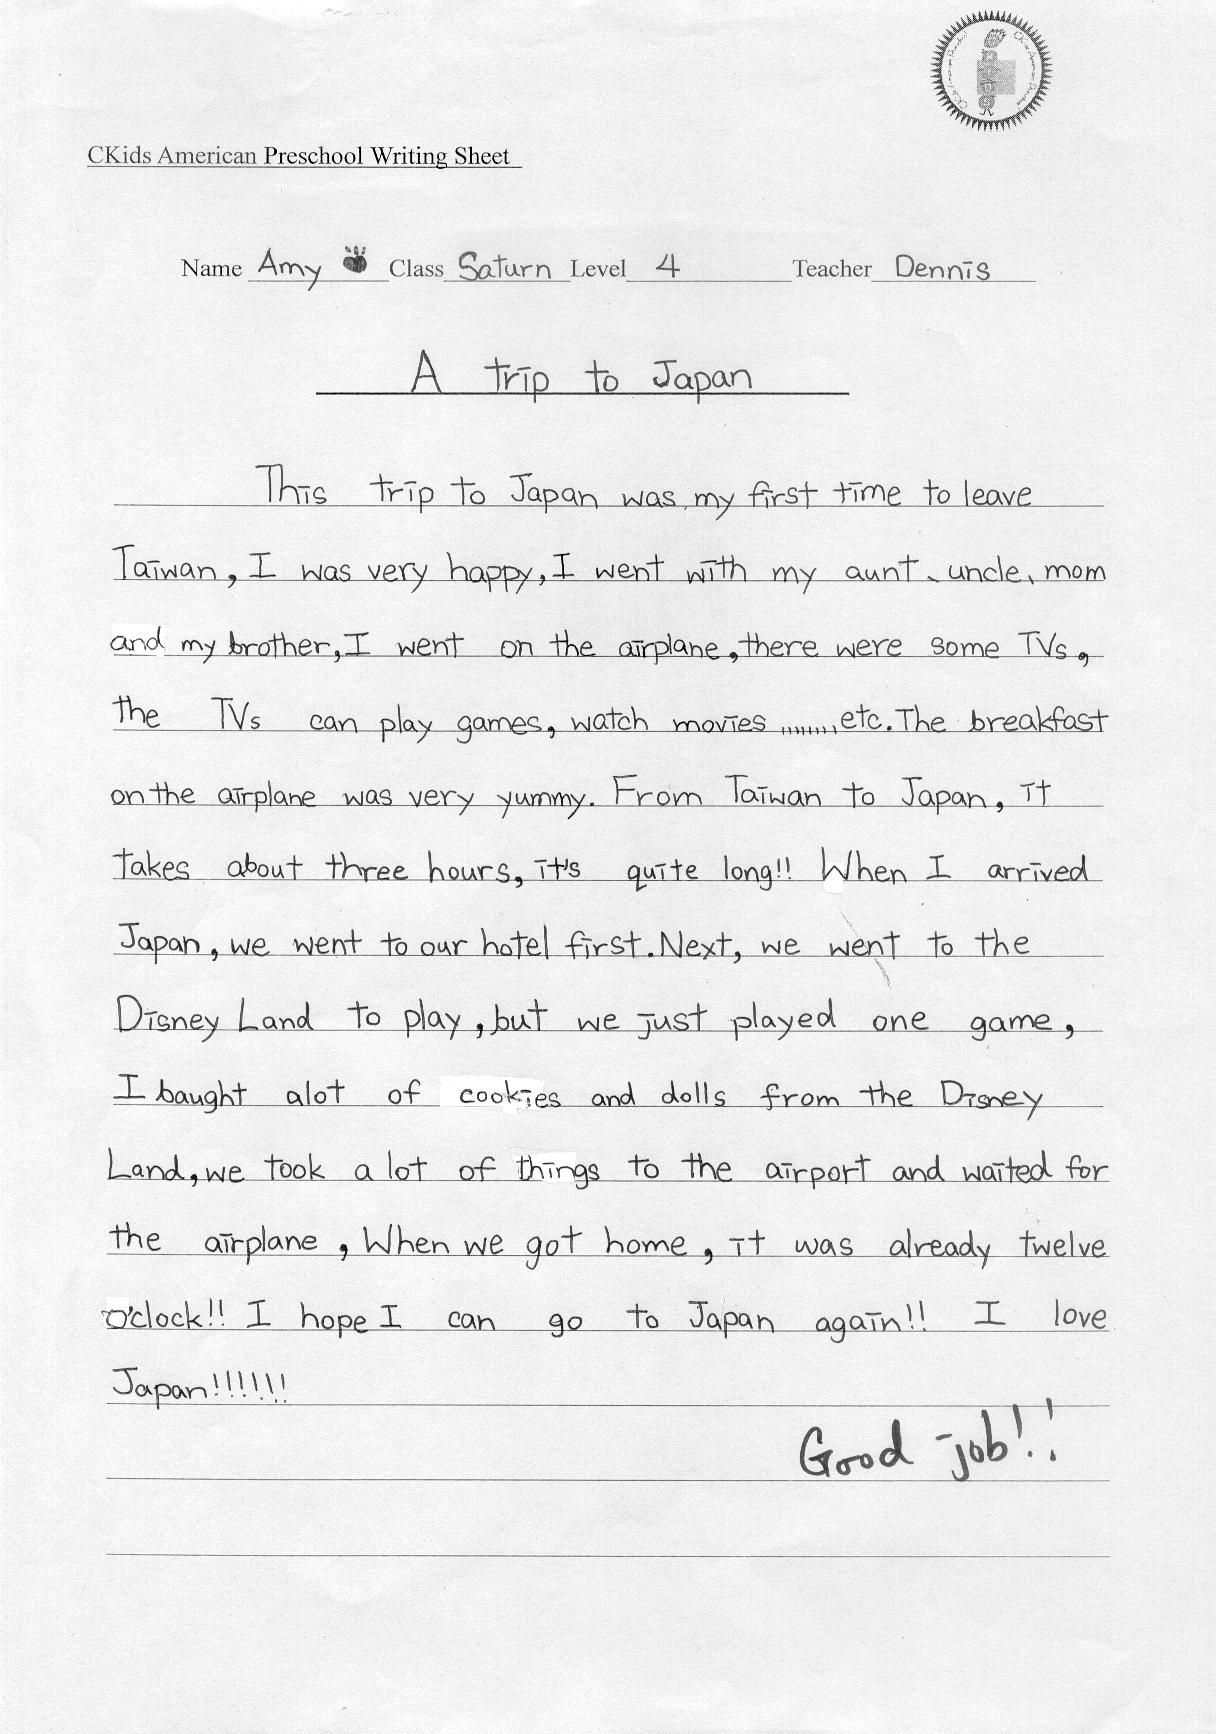 CKids American Preschool Writing Sheet
Name Amy Class Saturn Level 4 Teacher Dennis
A trip to Japan
This trip to Japan was my first time to leave
Taiwan, I was very happy, I went with my aunt、uncle、mom
and my brother, I went on the airplane, there were some TVs,
the TVs can play games, watch movies ,,,,,,,, etc. The breakfast
on the airplane was very yummy. From Taiwan to Japan, it
takes about three hours, it's quite long!! When I arrived
Japan, we went to our hotel first. Next, we went to the
Disney Land to play, but we just played one game,
I baught alot of cookies and dolls from the Disney
Land, we took a lot of things to the airport and waited for
the airplane, When we got home, it was already twelve
o'clock!! I hope I can go to Japan again!! I love
Japan!!!!!!
Good job!!